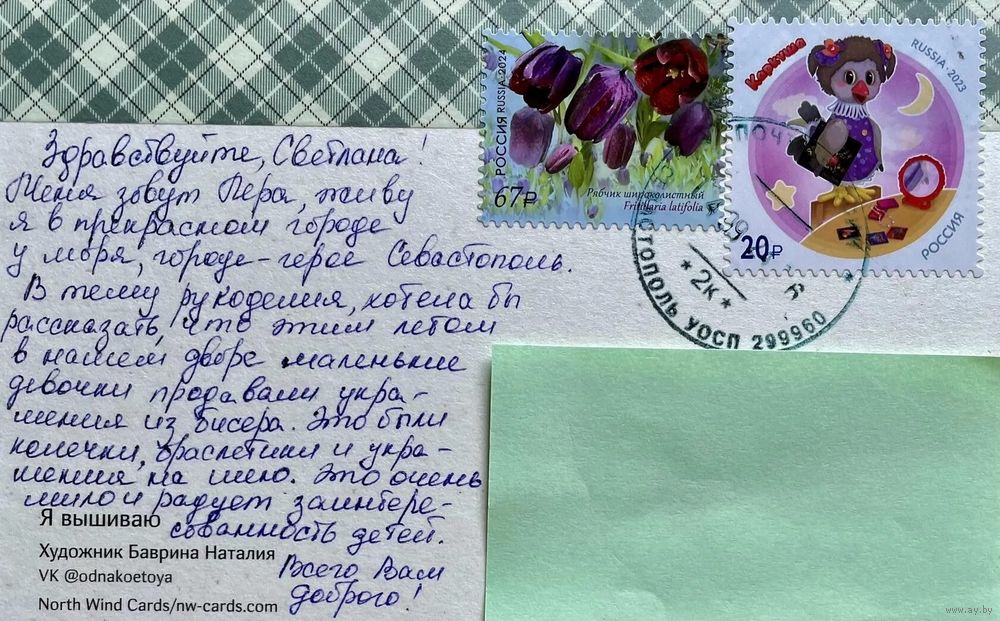 Здравствуйте, Светлана!
Меня зовут Лера, живу
я в прекрасном городе
у моря, городе-герое Севастополь.
В тему рукоделия, хотела бы
рассказать, что этим летом
в нашем дворе маленькие
девочки продавали укра-
шения из бисера. Это были
колечки, браслетики и укра-
шения на шею. Это очень
мило и радует заинтере-
сованность детей.
Всего Вам
доброго!
Я вышиваю
Художник Баврина Наталия
VK @odnakoetoya
North Wind Cards/nw-cards.com
РОССИЯ RUSSIA 2024
67₽
Рябчик широколистный
Fritillaria latifolia
Каркуша
RUSSIA • 2023
РОССИЯ
20₽
*2к*
СТОПОЛЬ УОСП 299960
www.ay.by